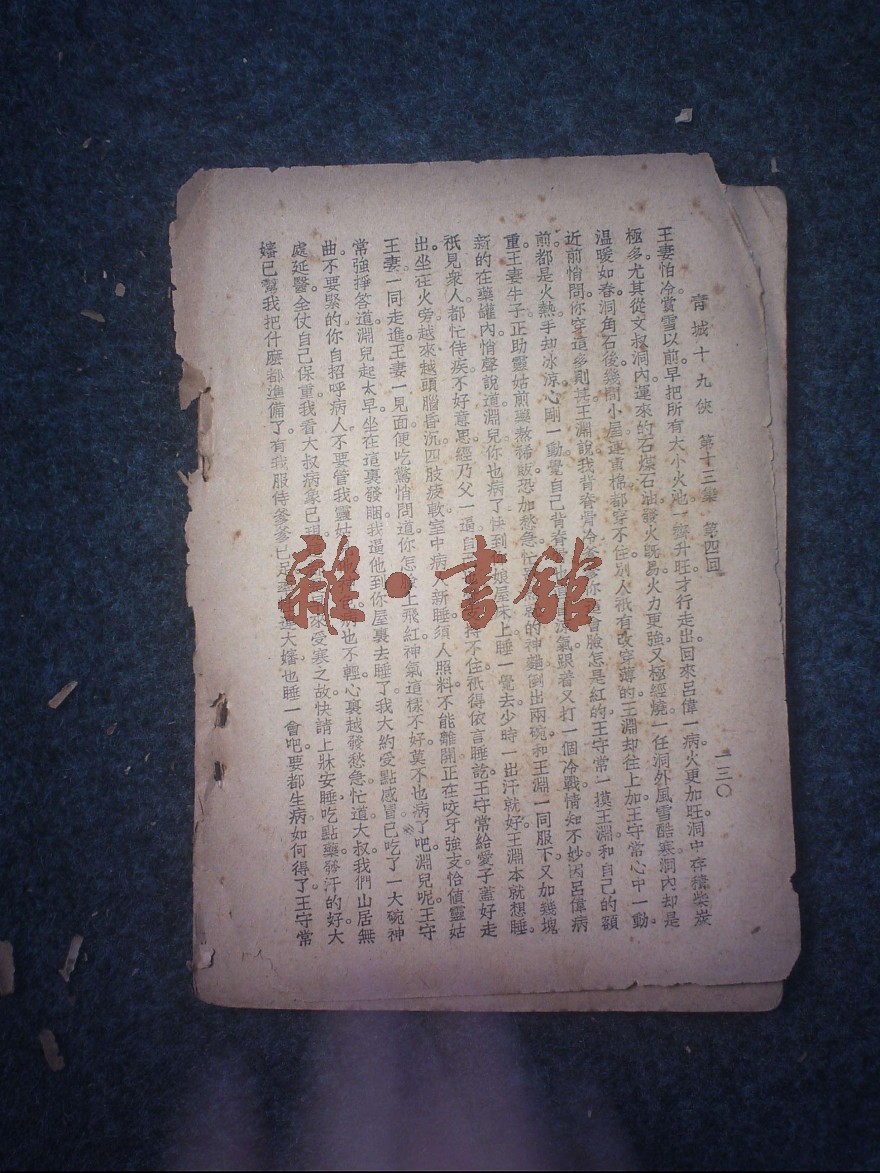 青城十九俠 第十三集 第四回 一三〇
王妻怕冷賞雪以前。早把所有大小火池一齊升旺才行走出回來呂偉一病火更加旺洞中存積柴炭
極多尤其從文叔洞內運來的石煤石油發火既易火力更強又極經燒一任洞外風雪酷寒洞內却是
溫暖如春洞角石後幾間小屋連重棉都穿不住別人祇有改穿薄的王淵却往上加王守常心中一動。
近前悄問你穿這多則甚王淵說我背脊骨冷爹爹你 會臉怎是紅的王守常一摸王淵和自己的額
前。都是火熱手却冰涼心剛一動覺自己背脊 涼氣跟着又打一個冷戰情知不妙因呂偉病
重。王妻牛子正助靈姑煎藥熬稀飯恐加愁急忙 的神麯倒出兩碗和王淵一同服下又加幾塊
新的在藥罐內悄聲說道淵兒你也病了快到 娘屋床上睡一覺去少時一出汗就好王淵本就想睡。
祇見衆人都忙侍疾不好意思經乃父一逼自 持不住祇得依言睡訖王守常給愛子蓋好走
出。坐在火旁越來越頭腦昏沉四肢疲軟室中病 新睡須人照料不能離開正在咬牙強支恰値靈姑
王妻一同走進王妻一見面便吃驚悄問道你怎臉上飛紅神氣這樣不好莫不也病了吧淵兒呢王守
常強掙答道淵兒起太早坐在這裏發睏我逼他到你屋裏去睡了我大約受點感冒已吃了一大碗神
曲。不要緊的你自招呼病人不要管我靈姑 病也不輕心裏越發愁急忙道大叔我們山居無
處延醫全仗自己保重我看大叔病象已現 受寒之故快請上牀安睡吃點藥發汗的好大
嬸已幫我把什麽都準備了。有我服侍爹爹已足 大嬸也睡一會吧要都生病如何得了王守常
雜·書館